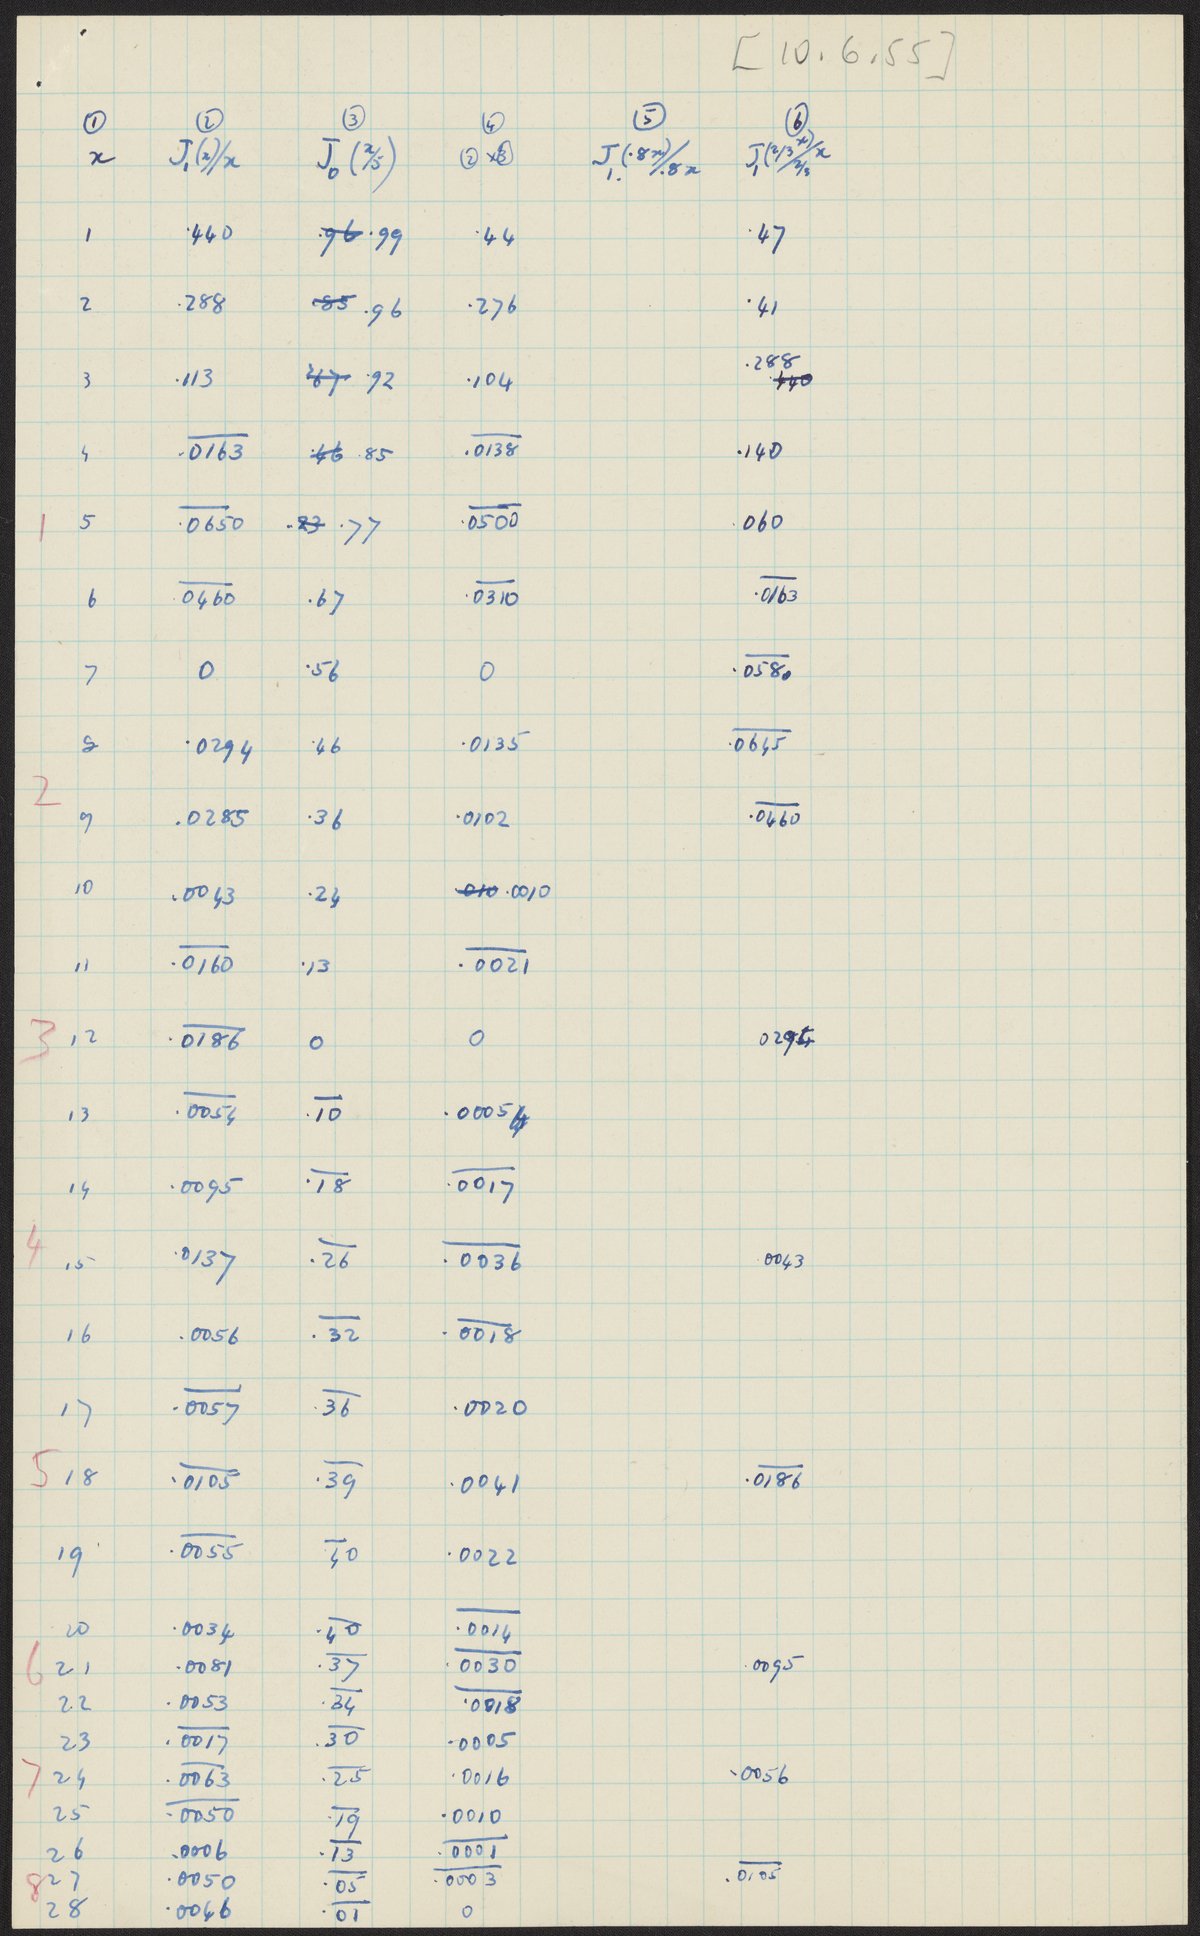 [10.6.55]
① ② ③ ④ ⑤ ⑥
x J₁(x)/x J₀(x/5) ②×③ J₁(.8x)/.8x J₁(2/3 x)/2/3 x
1 .440 .96 .99 .44 .47
2 .288 .85 .96 .276 .41
.288
3 .113 .67 .92 .104 .140
4 .0̅1̅6̅3̅ .46 .85 .0̅1̅3̅8̅ .140
1 5 .0̅6̅5̅0̅ .23 .77 .0̅5̅0̅0̅ .060
6 .0̅4̅6̅0̅ .67 .0̅3̅1̅0̅ .0̅1̅6̅3̅
7 0 .56 0 .0̅5̅8̅0̅
8 .0294 .46 .0135 .0̅6̅4̅5̅
2
9 .0285 .36 .0102 .0̅4̅6̅0̅
10 .0043 .24 .010 .0010
11 .0̅1̅6̅0̅ .13 .0̅0̅2̅1̅
3 12 .0̅1̅8̅6̅ 0 0 0294
13 .0̅0̅5̅4̅ .1̅0̅ .00054
14 .0095 .1̅8̅ .0̅0̅1̅7̅
4 15 .0137 .2̅6̅ .0̅0̅3̅6̅ .0043
16 .0056 .3̅2̅ .0̅0̅1̅8̅
17 .0̅0̅5̅7̅ .3̅6̅ .0020
5 18 .0̅1̅0̅5̅ .3̅9̅ .0041 .0̅1̅8̅6̅
19 .0̅0̅5̅5̅ .4̅0̅ .0022
20 .0034 .4̅0̅ .0̅0̅1̅4̅
6 21 .0081 .3̅7̅ .0̅0̅3̅0̅ .0095
22 .0053 .3̅4̅ .0̅0̅1̅8̅
23 .0̅0̅1̅7̅ .3̅0̅ .0005
7 24 .0̅0̅6̅3̅ .2̅5̅ .0016 .0056
25 .0̅0̅5̅0̅ .1̅9̅ .0010
26 .0006 .1̅3̅ .0̅0̅0̅1̅
8 27 .0050 .0̅5̅ .0̅0̅0̅3̅ .0̅1̅0̅5̅
28 .0046 .0̅1̅ 0